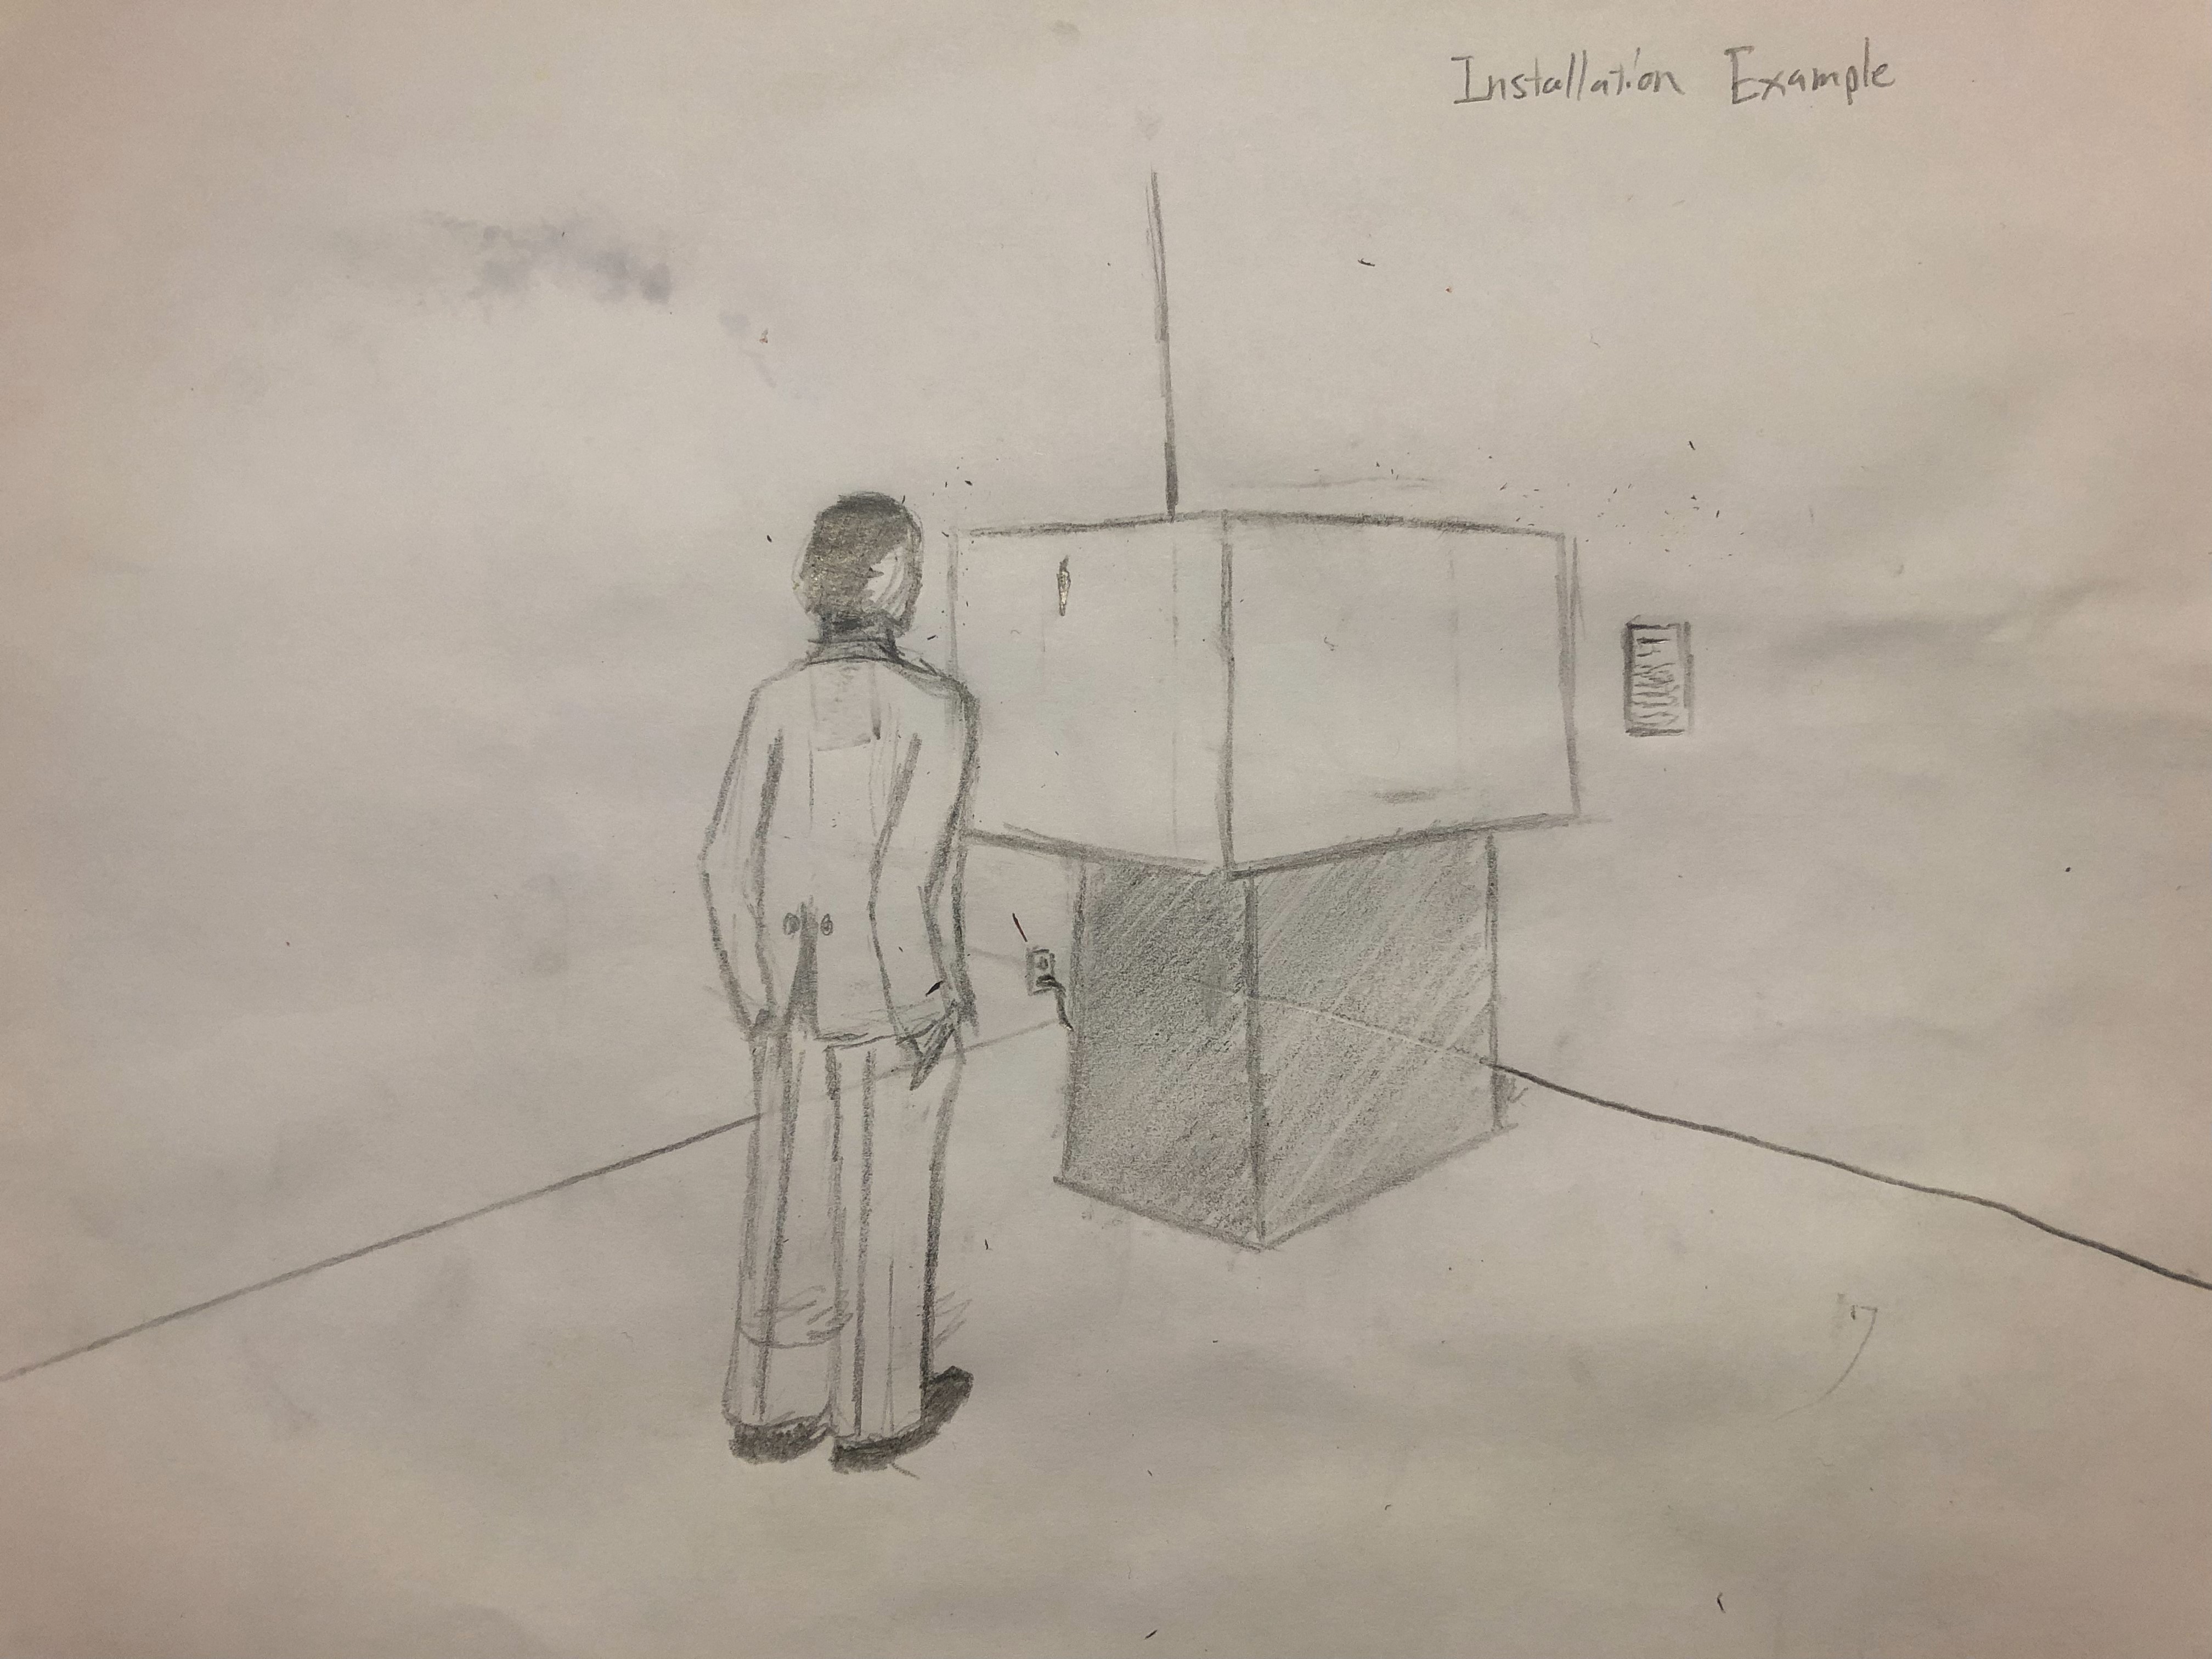 Installation Example